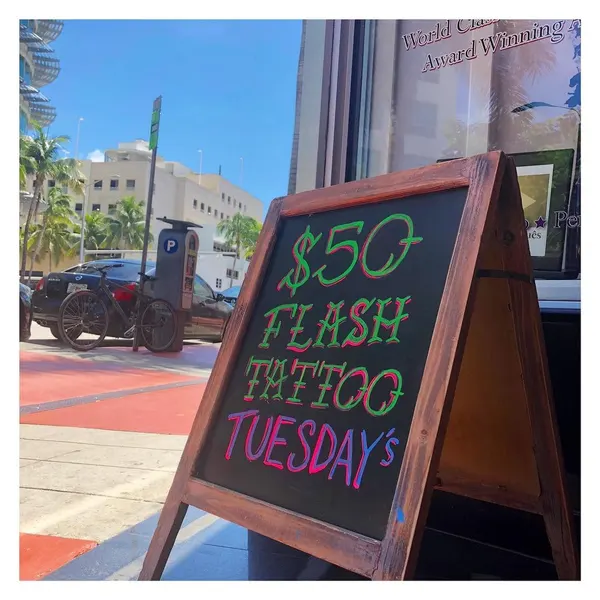 World
Award Winning
$50
FLASH
TATTOO
TUESDAY'S
P